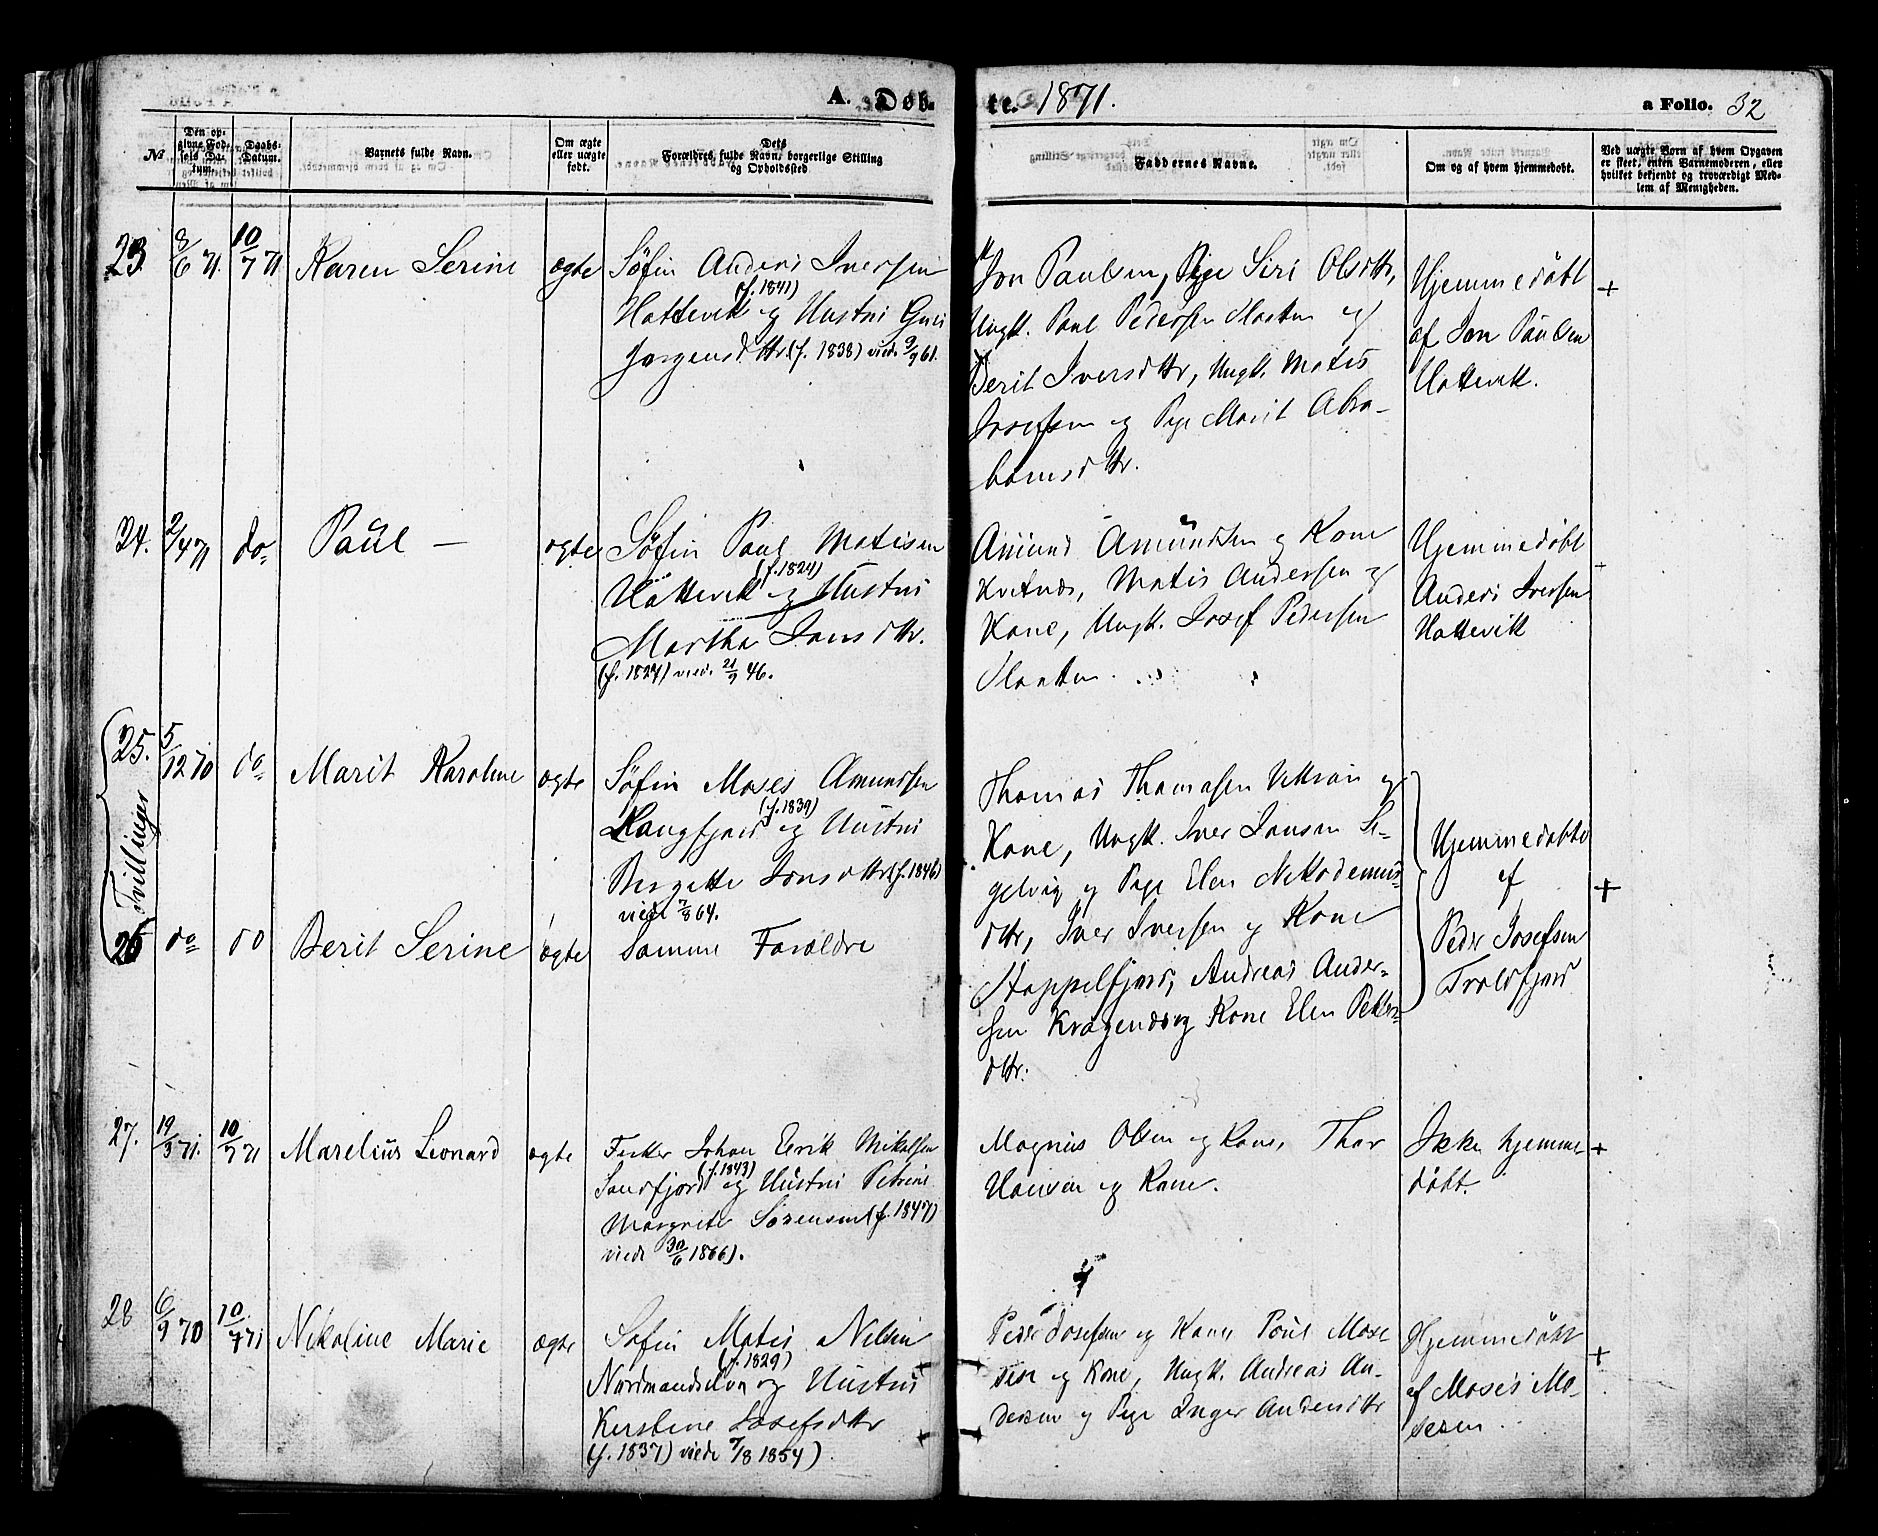 A. Døb-
te. 1871.
a Folio. 32
№
Den op-
givne Fød-
sels Da-
tum.
Daabs-
Datum.
Barnets fulde Navn.
Om ægte
eller uægte
født.
Dets
Forældres fulde Navn, borgerlige Stilling
og Opholdssted
Faddernes Navne.
Om og af hvem hjemmedøbt.
Ved uægte Børn af hvem Opgaven
er skeet, enten Barnemoderen, eller
hvilket bekjendt og troværdigt Med-
lem af Menigheden.
23. 8/6 71. 10/7 71 Karen Serine ægte
Søfin Anders Iversen
(f. 1841)
Hattevik og Hustru
Jørgensdttr (f. 1838) viede 9/9 61.
Jon Paulsen, Pige Siri Olsdttr,
Ungk. Paul Pedersen Slaatten og
Berit Iversdttr, Ungk. Matis
Josefsen og Pige Marit Abra-
hamsdttr.
Hjemmedøbt
af Jon Paulsen
Hattevik.
+
24. 2/4 71 do Paul — ægte
Søfin Paul Matisen
(f. 1824)
Hattevik og Hustru
Martha Jonsdttr.
(f. 1827) viede 21/9 46.
Amund Amundsen og Kone
Kvitnæs, Matis Andersen og
Kone, Ungk. Josef Pedersen
Slaatten.
Hjemmedøbt
Anders Iversen
Hattevik
+
Tvillinger
25. 5/12 70 do Marit Karoline ægte
Søfin Moses Amundsen
(f. 1839)
Langfjord og Hustru
Bergette Jonsdttr (f. 1846)
viede 7/8 64.
26 do do Berit Serine ægte
Samme Forældre
Thomas Thomasen Veltsrøn og
Kone, Ungk. Iver Jonsen Si-
gelvig og Pige Elen Nikodemus-
dttr, Iver Iversen og Kone
Stappelfjord, Andreas Ander-
sen Krøgenæs og Kone Elen Peders-
dttr.
Hjemmedøbte
af
Peder Josefsen
Troldfjord
+
27. 19/3 71. 10/7 71 Marelius Leonard ægte
Fisker Johan Eerik Mikalsen
(f. 1843)
Sandfjord og Hustru Petrine
Margrete Sørensen (f. 1847)
viede 30/6 1866).
Magnus Olsen og Kone, Thor
Hansen og Kone.
Ikke hjemme-
døbt.
+
28 6/9 70 10/7 71 Nikoline Marie ægte
Søfin Matis Nilsen
(f. 1829)
Nordmandselva og Hustru
Kerstine Josefsdttr
(f. 1837) viede 7/8 1854)
Peder Josefsen og Kone Poul Mose-
sen og Kone, Ungk. Andreas An-
dersen og Pige Inger Andersdttr
Hjemmedøbt
af Moses Mo-
sesen.
+